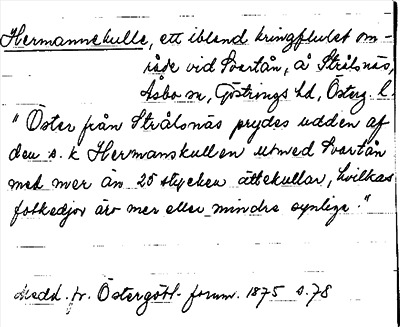 Hermannskulle, ett ibland kringflutet om-
råde vid Svartån, å Strålsnäs,
Åsbo sn, Göstrings hd, Österg. l.
"Öster från Strålsnäs prydes udden af
den s. k Hermanskullen utmed Svartån
med mer än 25 stycken ättekullar, hvilkas
äro mer eller mindre synliga."
Medd. fr. Östergötl. fornm. 1875 s. 78